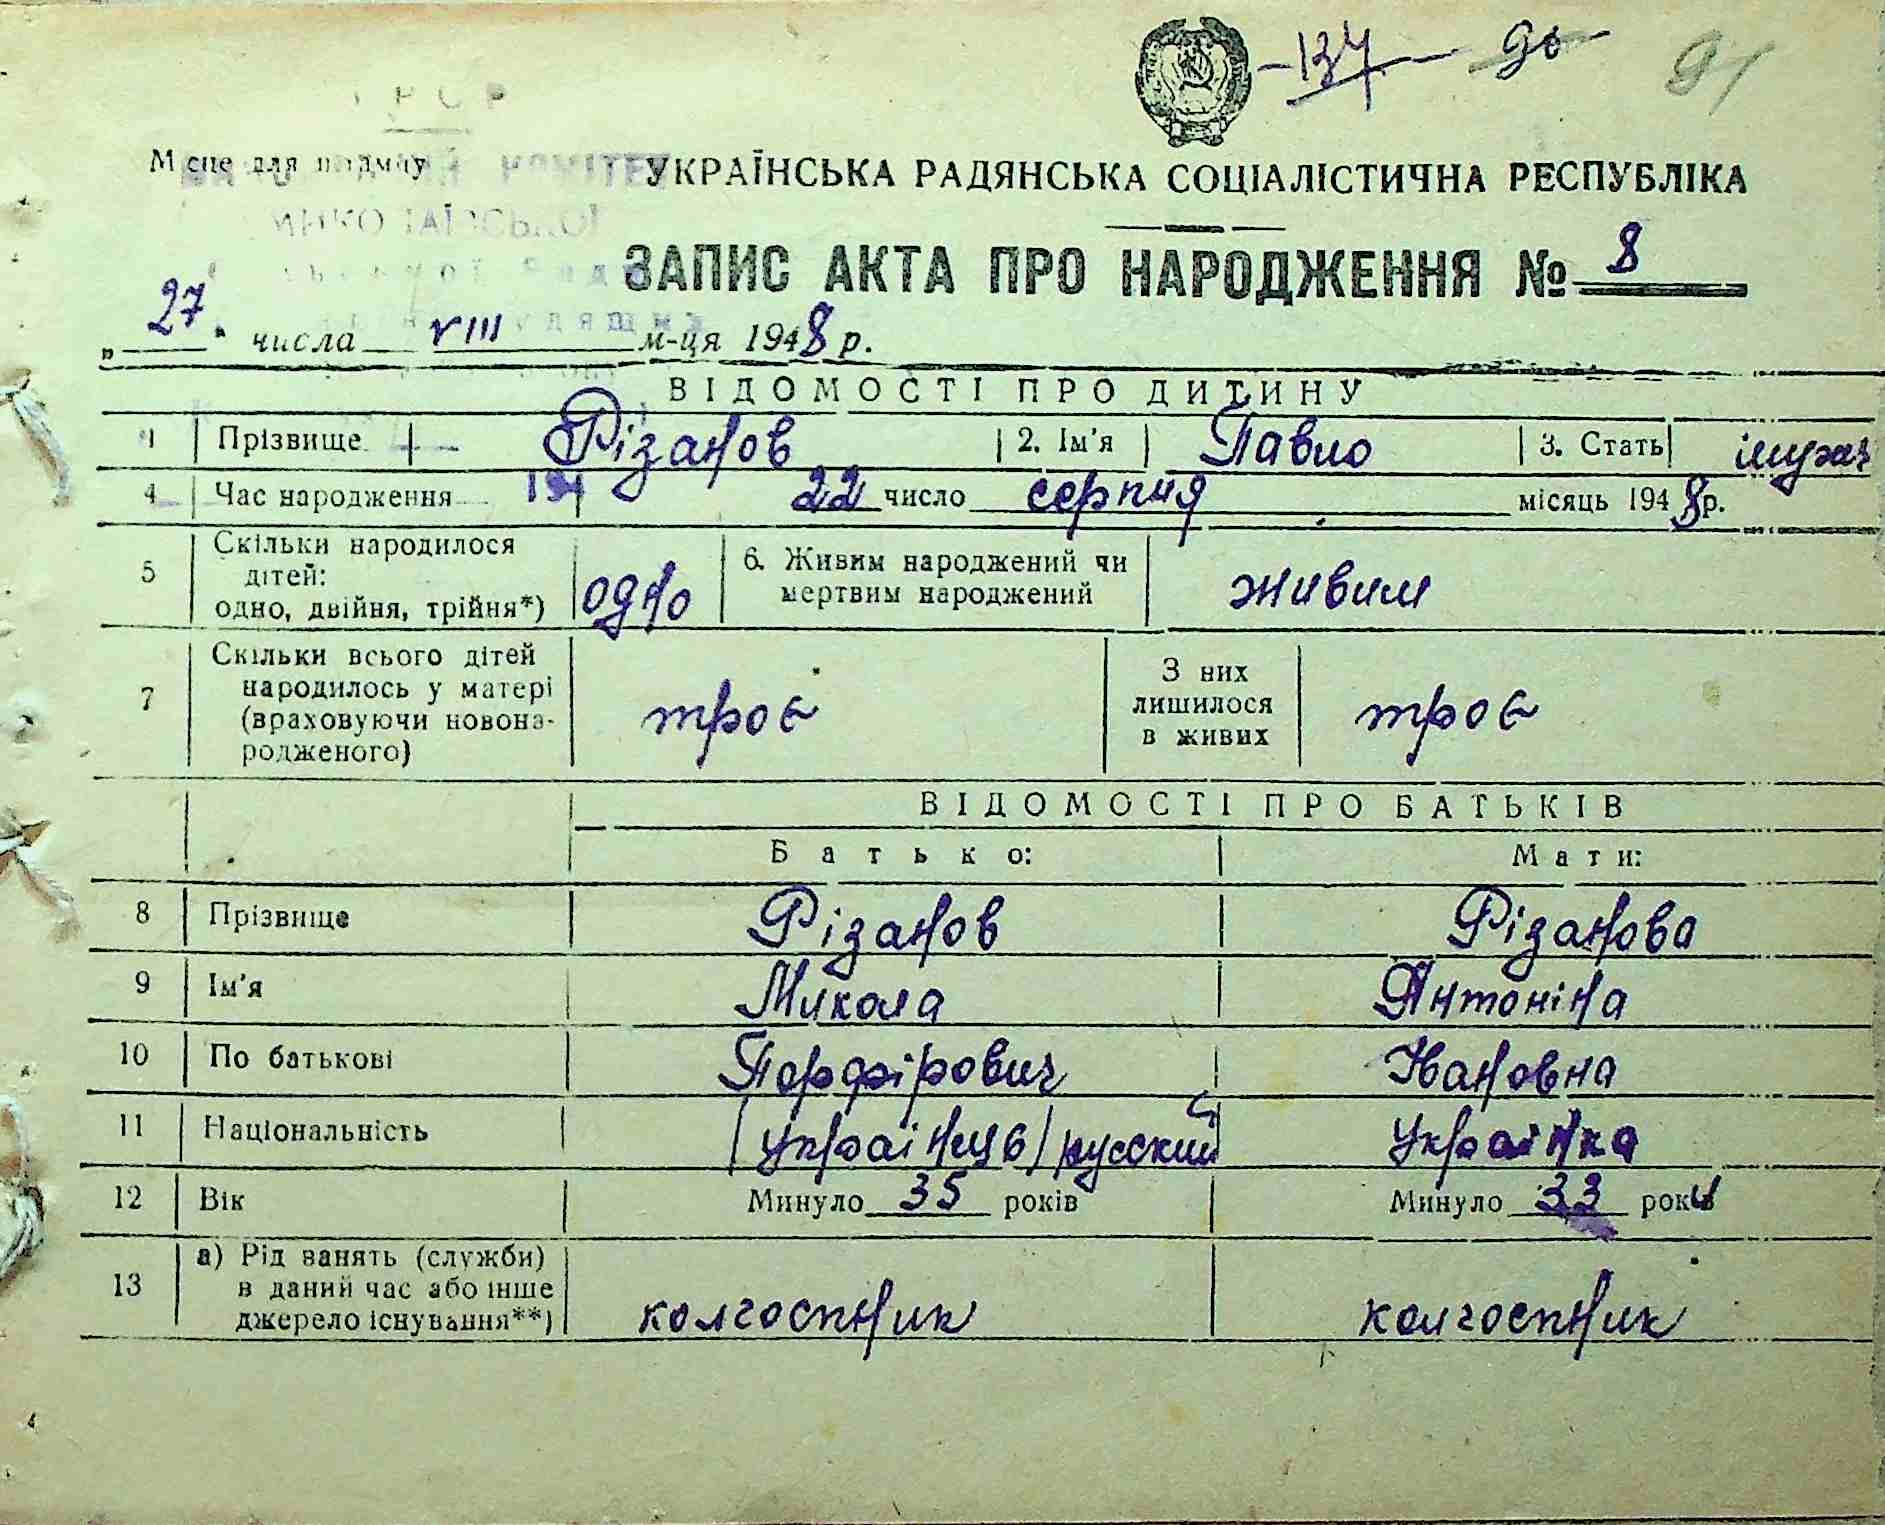 -137- 90 91
УРСР
Місце для штампу
КОМІТЕТ
УКРАЇНСЬКА РАДЯНСЬКА СОЦІАЛІСТИЧНА РЕСПУБЛІКА
МИКОЛАЇВСЬКОЇ
ЗАПИС АКТА ПРО НАРОДЖЕННЯ № 8
„27" числа VIII м-ця 1948 р.
ВІДОМОСТІ ПРО ДИТИНУ
1 Прізвище Різанов 2. Ім'я Павло 3. Стать
4 Час народження 22 число серпня місяць 1948 р.
5 Скільки народилося дітей: одно, двійня, трійня*) одно 6. Живим народжений чи мертвим народжений живим
7 Скільки всього дітей народилось у матері (враховуючи новона-родженого) троє З них лишилося в живих троє
ВІДОМОСТІ ПРО БАТЬКІВ
Батько: Мати:
8 Прізвище Різанов Різанова
9 Ім'я Микола Антоніна
10 По батькові Порфірович Івановна
11 Національність (українць) русский українка
12 Вік Минуло 35 років Минуло 33 роки
13 а) Рід занять (служби) в даний час або інше джерело існування**) колгоспник колгоспник